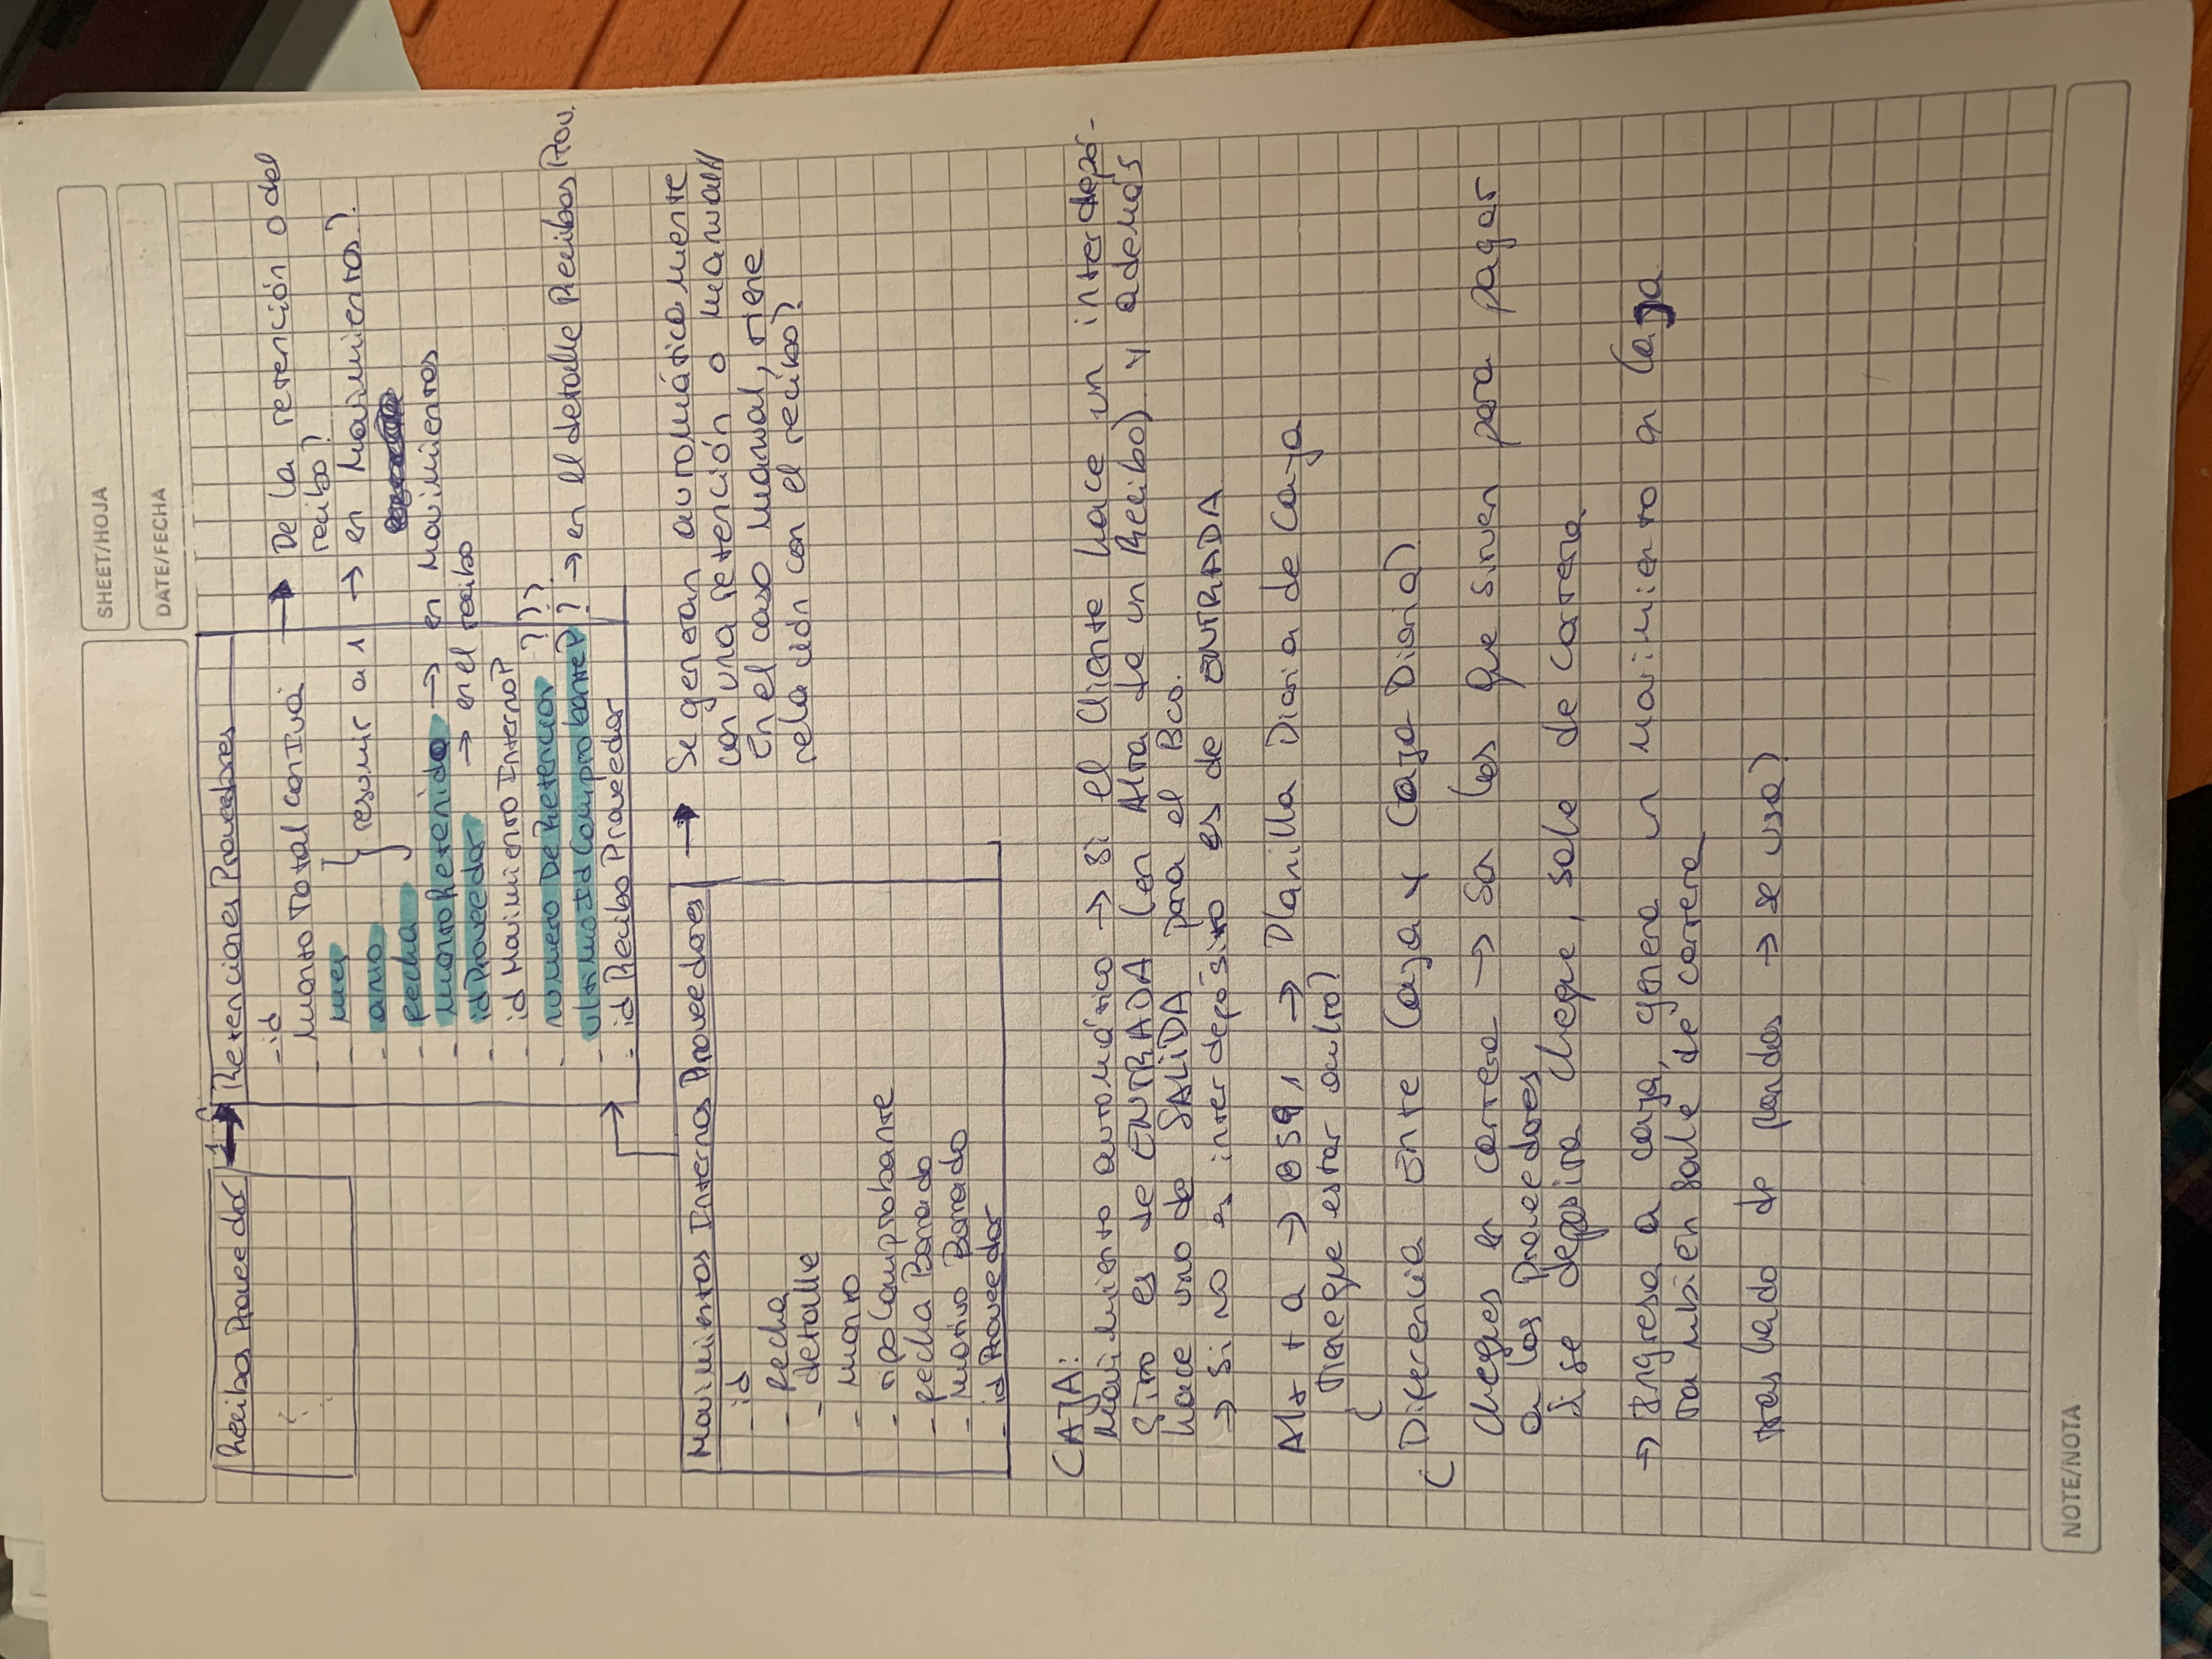 SHEET/HOJA
DATE/FECHA
Recibos Proveedor
1
Retenciones Proveedores
- id
- montoTotalConIva → De la retención o del
recibo?
- mes
- anio } resumir a 1 → en Movimientos?
- fecha
- montoRetenido → en Movimientos
- idProveedor → en el recibo
- idMovimientoInternoP
- numeroDeRetencion ???
- ultimoIdComprobanteP? → en el detalle Recibos Prov.
- idReciboProveedor
Movimientos Internos Proveedores → Se generan automáticamente
con una retención o manual//
En el caso manual, tiene
relación con el recibo?
- id
- fecha
- detalle
- monto
- tipoComprobante
- fecha Borrado
- motivo Borrado
- idProveedor
CAJA:
Movimiento automático → Si el cliente hace un interdepó-
sito es de ENTRADA (en Alta de un Recibo) y además
hace uno de SALIDA para el Bco.
→ Si NO es interdepósito es de ENTRADA
Alt + a → 0591 → Planilla Diaria de Caja
¿Tiene que estar oculto?
¿Diferencia Entre Caja y Caja Diaria?
cheques en cartera → Son los que sirven para pagar
a los Proveedores,
Si se deposita cheque, sale de cartera
→ Ingresa a caja, genera un movimiento en Caja
También sale de cartera
traslado de fondos → se usa?
NOTE/NOTA